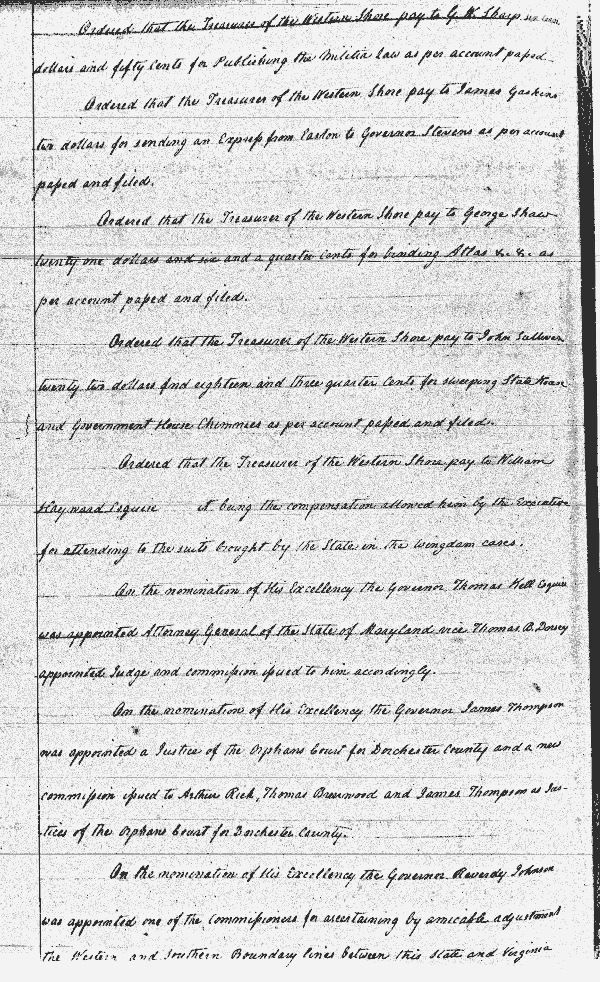 Ordered that the Treasurer of the Western Shore pay to G. W. Sharp
dollars and fifty Cents for Publishing the Militia Law as per account paßed
Ordered that the Treasurer of the Western Shore pay to James Gaskins
two dollars for sending an Expreß from Easton to Governor Stevens as per account
paßed and filed.
Ordered that the Treasurer of the Western Shore pay to George Shaw
twenty one dollars and six and a quarter Cents for binding Atlas &. &. as
per account paßed and filed.
Ordered that the Treasurer of the Western Shore pay to John Sullivan
twenty two dollars and eighteen and three quarter Cents for sweeping State House
and Government House Chimnies as per account paßed and filed.
Ordered that the Treasurer of the Western Shore pay to William
Hayward Esquire it being the compensation allowed him by the Executive
for attending to the suits brought by the State in the cases.
On the nomination of His Excellency the Governor Thomas Kell Esquire
was appointed Attorney General of the State of Maryland vice Thomas B. Dorsey
appointed Judge and commißion ißued to him accordingly.
On the nomination of His Excellency the Governor James Thompson
was appointed a Justice of the Orphans Court for Dorchester County and a new
commißion ißued to Arthur Rich, Thomas Breerwood and James Thompson as Jus-
tices of the Orphans Court for Dorchester County.
On the nomination of His Excellency the Governor Reverdy Johnson
was appointed one of the Commißioners for ascertaining by amicable adjustment
the Western and Southern Boundary lines between this State and Virginia